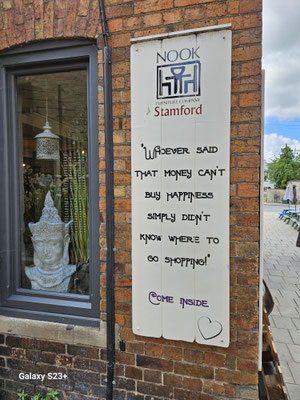 NOOK
FURNITURE COMPANY
Stamford
"Whoever said
that money can't
buy happiness
simply didn't
know where to
go shopping!"
Come inside
Galaxy S23+